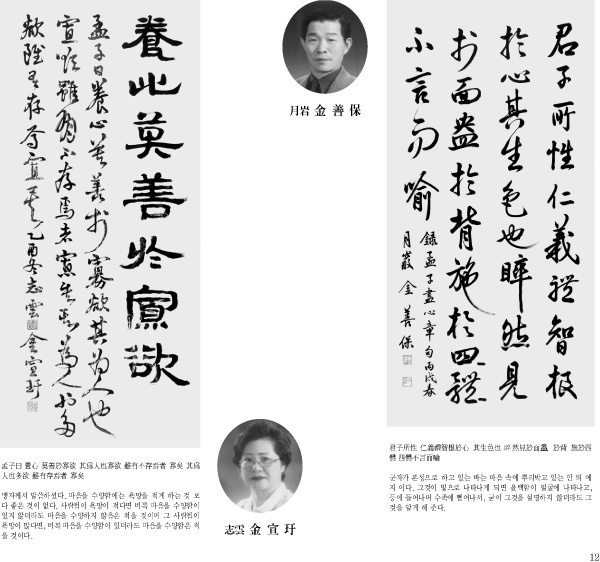 養心莫善於寡欲
孟子曰養心莫善於寡欲其爲人也
寡欲雖有不存焉者寡矣其爲人也多
欲雖有存焉者寡矣 乙酉冬 志雲 金宣玗
月岩 金善保
君子所性仁義禮智根
於心其生色也睟然見
於面盎於背施於四體
不言而喩
錄孟子盡心章句丙戌春
月巖 金善保
孟子曰 養心 莫善於寡欲 其爲人也寡欲 雖有不存焉者 寡矣 其爲
人也多欲 雖有存焉者 寡矣
맹자께서 말씀하셨다. 마음을 수양함에는 욕망을 적게 하는 것 보
다 좋은 것이 없다. 사람됨이 욕망이 적다면 비록 마음을 수양함이
있지 않더라도 마음을 수양하지 않음은 적을 것이며 그 사람됨이
욕망이 많다면, 비록 마음을 수양함이 있더라도 마음을 수양함은 적
을 것이다.
志雲 金宣玗
君子所性 仁義禮智根於心 其生色也 睟然見於面盎 於背 施於四
體 四體不言而喻
군자가 본성으로 하고 있는 바는 마음 속에 뿌리박고 있는 인 의 예
지 이다. 그것이 빛으로 나타나게 되면 윤택함이 얼굴에 나타나고,
등에 들어나며 수족에 뻗어나서, 굳이 그것을 설명하지 않더라도 그
것을 알게 해 준다.
12